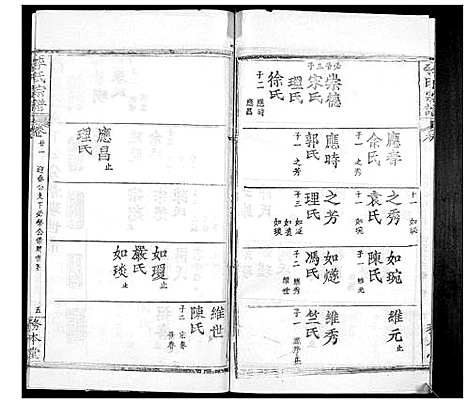 崇德
宋氏
理氏
徐氏
子二 應時
應昌
應春
余氏
子一 之秀
應時
郭氏
子一 之芳
應昌 止
理氏
之秀
袁氏
子一 如琬
之芳
理氏
子三 如燧
如環
如琰
如琬
陳氏
子一 維元
如燧
馮氏
子一 維秀
如環 止
嚴氏
如琰 止
維元 止
維秀
竺氏
子一
維世
陳氏
子二
氏宗譜
卷廿一
五
務本堂